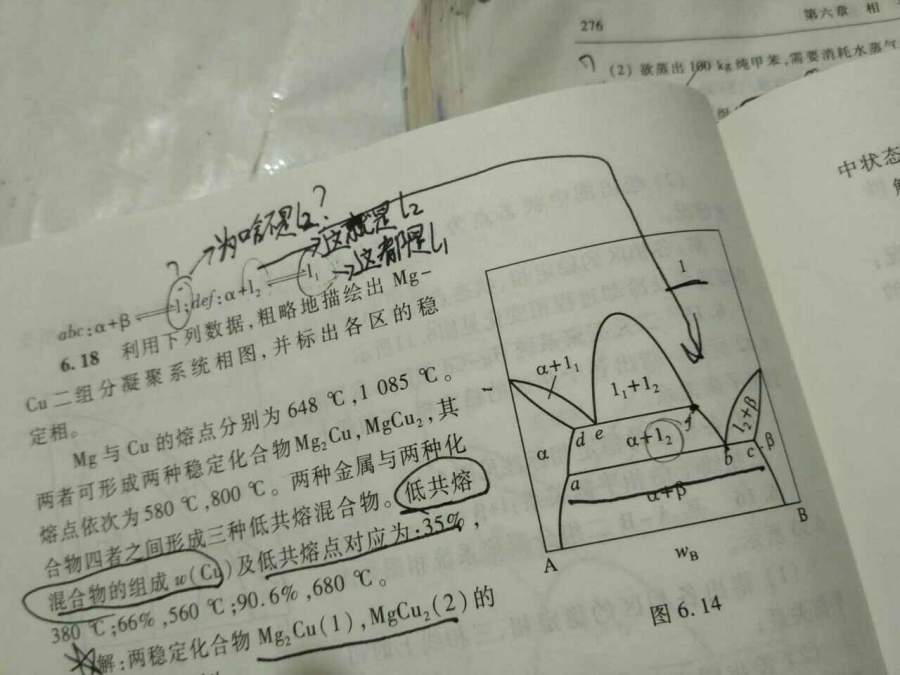 276
第六章 相
(2) 欲蒸出 100 kg 纯甲苯,需要消耗水蒸气
中状态
解
?
→为啥不是l₂?
→这就是l₂
→这都是l₁
abc:α+β ⇌ l;def:α+l₂ ⇌ l₁
6.18 利用下列数据,粗略地描绘出 Mg-
Cu 二组分凝聚系统相图,并标出各区的稳
定相。
Mg 与 Cu 的熔点分别为 648 ℃,1 085 ℃。
两者可形成两种稳定化合物 Mg₂Cu,MgCu₂,其
熔点依次为 580 ℃,800 ℃。两种金属与两种化
合物四者之间形成三种低共熔混合物。低共熔
混合物的组成 w(Cu)及低共熔点对应为:35%,
380 ℃;66%,560 ℃;90.6%,680 ℃。
解:两稳定化合物 Mg₂Cu(1),MgCu₂(2)的
l
α+l₁
l₁+l₂
l₂+β
d e f
α
α+l₂
a b c β
α+β
A B
wB
图 6.14